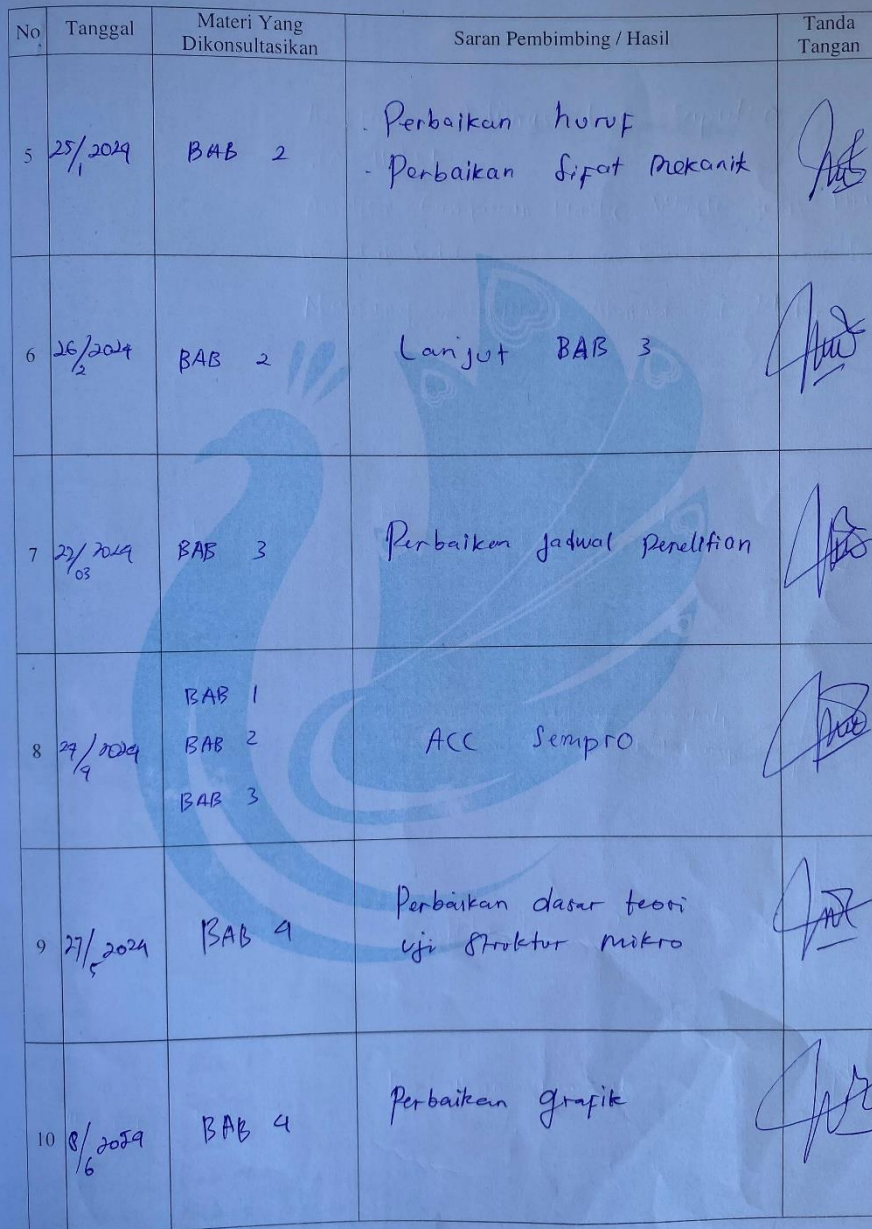 No Tanggal Materi Yang Dikonsultasikan Saran Pembimbing / Hasil Tanda Tangan
5 25/1 2024 BAB 2
- Perbaikan huruf
- Perbaikan Sifat Mekanik
6 26/2 2024 BAB 2 Lanjut BAB 3
7 22/03 2024 BAB 3 Perbaikan jadwal Penelitian
8 BAB 1
29/4 2024 BAB 2 ACC Sempro
BAB 3
9 27/5 2024 BAB 4 Perbaikan dasar teori
uji Struktur mikro
10 8/6 2024 BAB 4 Perbaikan grafik